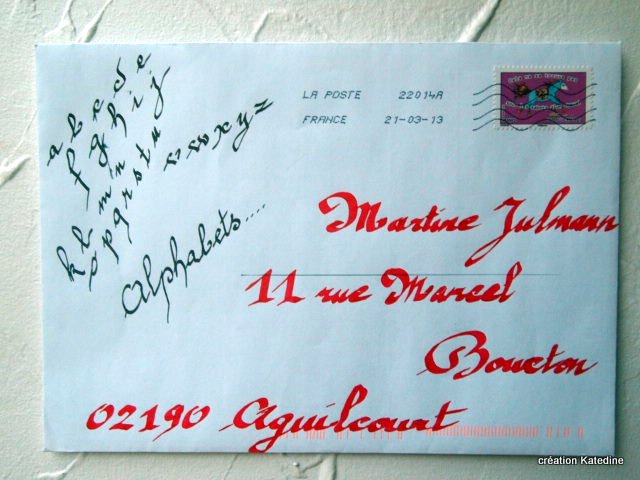 a b c d e
f g h i j
k l m n
o p q r s t u
v w x y z
Alphabets....
LA POSTE 22014A
FRANCE 21-03-13
Martine Julmann
11 rue Marcel
Boucton
02190 Aguilcourt
création Katedine